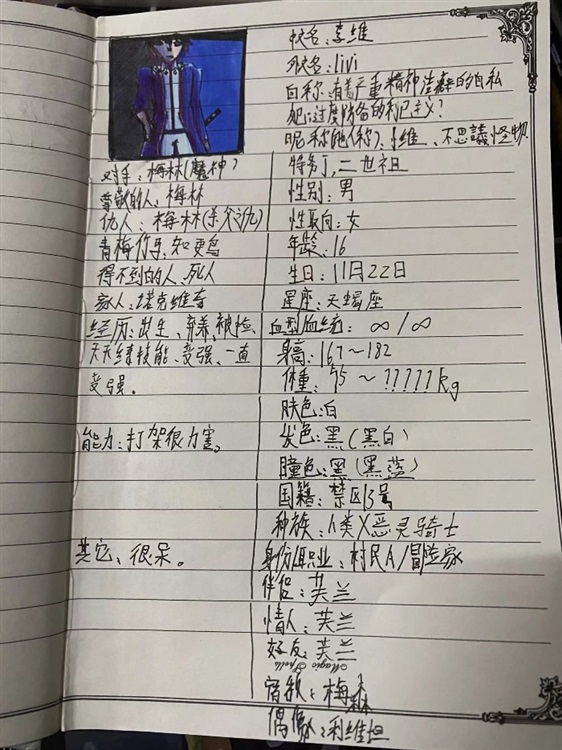 中文名：李维
外文名：livi
自称：有着严重精神洁癖的自私
犯；过度防备的利己主义？
昵称(他称)：维、不思議怪物
特务J，二世祖
性别：男
性取向：女
年龄：16
生日：11月22日
星座：天蝎座
血型血统：∞/∞
身高：167～182
体重：95～?????kg
肤色：白
发色：黑(黑白)
瞳色：黑(黑蓝)
国籍：禁区13号
种族：人类X恶灵骑士
身份(职业)：村民A/冒险家
伴侣：芙兰
情人：芙兰
好友：芙兰
Magic Spells
宿敌：梅林
偶像：利维坦
对手：梅林(魔神)
尊敬的人：梅林
仇人：梅林(杀父之仇)
青梅竹马：知更鸟
得不到的人：死人
家人：塔克维奇
经历：出生、弃养、被捡、
天天练技能、变强、一直
变强。
能力：打架很厉害。
其它、很呆。